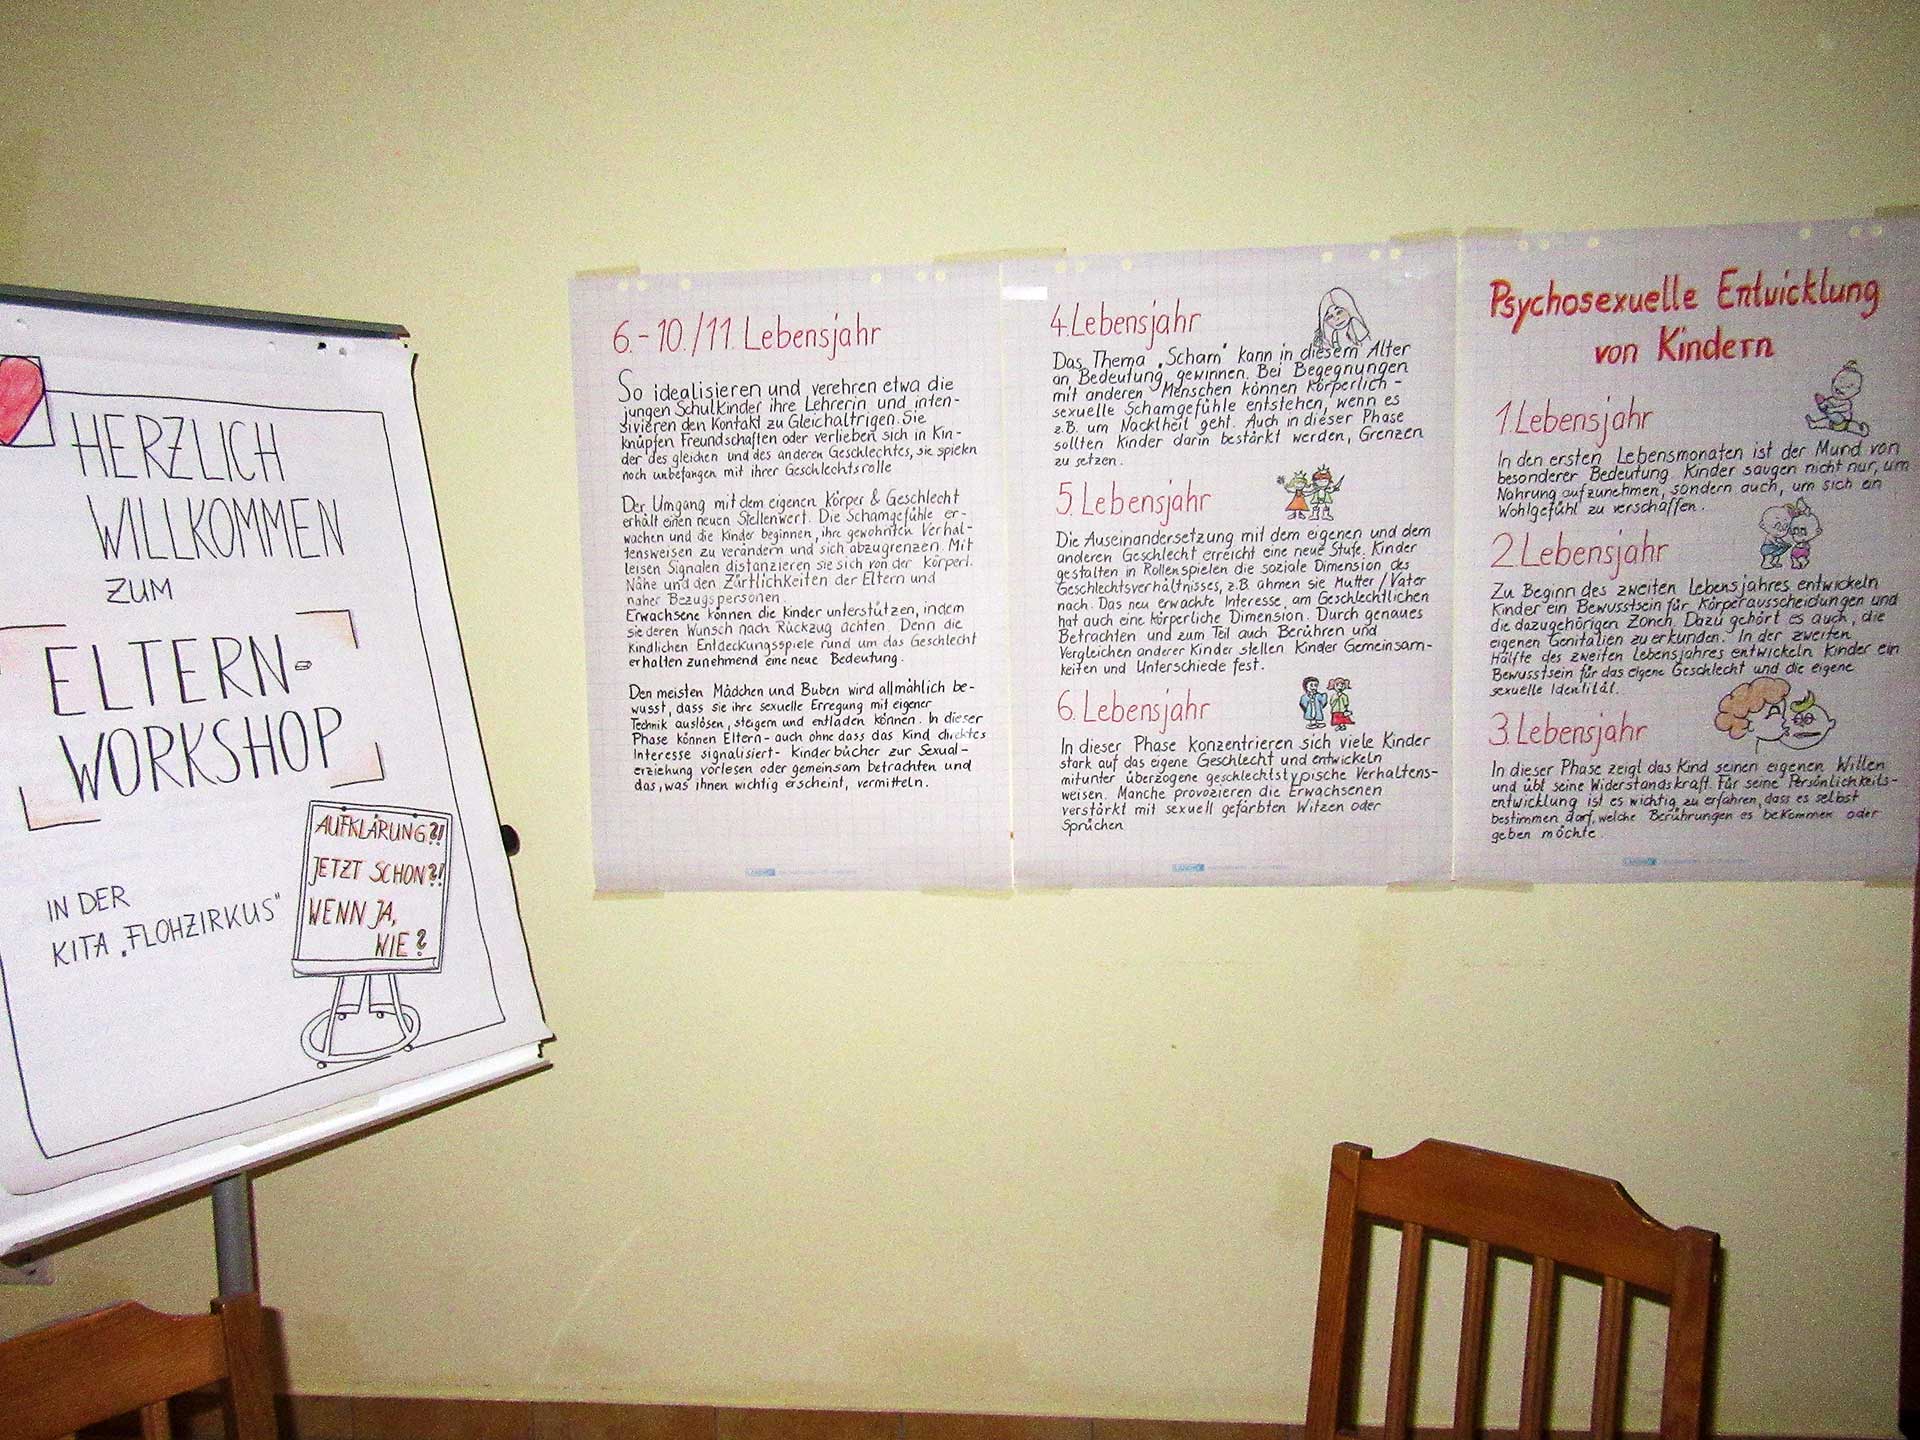 HERZLICH
WILLKOMMEN
ZUM
ELTERN-
WORKSHOP
IN DER
KITA „FLOHZIRKUS"
AUFKLÄRUNG?!
JETZT SCHON?!
WENN JA,
WIE?
6.-10./11. Lebensjahr
So idealisieren und verehren etwa die
jungen Schulkinder ihre Lehrerin und inten-
sivieren den Kontakt zu Gleichaltrigen. Sie
knüpfen Freundschaften oder verlieben sich in Kin-
der des gleichen und des anderen Geschlechtes, sie spielen
noch unbefangen mit ihrer Geschlechtsrolle
Der Umgang mit dem eigenen Körper & Geschlecht
erhält einen neuen Stellenwert. Die Schamgefühle er-
wachen und die Kinder beginnen, ihre gewohnten Verhal-
tensweisen zu verändern und sich abzugrenzen. Mit
leisen Signalen distanzieren sie sich von der körperl.
Nähe und den Zärtlichkeiten der Eltern und
naher Bezugspersonen.
Erwachsene können die Kinder unterstützen, indem
sie deren Wunsch nach Rückzug achten. Denn die
kindlichen Entdeckungsspiele rund um das Geschlecht
erhalten zunehmend eine neue Bedeutung.
Den meisten Mädchen und Buben wird allmählich be-
wusst, dass sie ihre sexuelle Erregung mit eigener
Technik auslösen, steigern und entladen können. In dieser
Phase können Eltern - auch ohne dass das Kind direktes
Interesse signalisiert - Kinderbücher zur Sexual-
erziehung vorlesen oder gemeinsam betrachten und
das, was ihnen wichtig erscheint, vermitteln.
4. Lebensjahr
Das Thema „Scham" kann in diesem Alter
an Bedeutung gewinnen. Bei Begegnungen
mit anderen Menschen können körperlich-
sexuelle Schamgefühle entstehen, wenn es
z.B. um Nacktheit geht. Auch in dieser Phase
sollten Kinder darin bestärkt werden, Grenzen
zu setzen.
5. Lebensjahr
Die Auseinandersetzung mit dem eigenen und dem
anderen Geschlecht erreicht eine neue Stufe. Kinder
gestalten in Rollenspielen die soziale Dimension des
Geschlechtsverhältnisses, z.B. ahmen sie Mutter/Vater
nach. Das neu erwachte Interesse am Geschlechtlichen
hat auch eine körperliche Dimension. Durch genaues
Betrachten und zum Teil auch Berühren und
Vergleichen anderer Kinder stellen Kinder Gemeinsam-
keiten und Unterschiede fest.
6. Lebensjahr
In dieser Phase konzentrieren sich viele Kinder
stark auf das eigene Geschlecht und entwickeln
mitunter überzogene geschlechtstypische Verhaltens-
weisen. Manche provozieren die Erwachsenen
verstärkt mit sexuell gefärbten Witzen oder
Sprüchen
Psychosexuelle Entwicklung
von Kindern
1. Lebensjahr
In den ersten Lebensmonaten ist der Mund von
besonderer Bedeutung. Kinder saugen nicht nur, um
Nahrung aufzunehmen, sondern auch, um sich ein
Wohlgefühl zu verschaffen.
2. Lebensjahr
Zu Beginn des zweiten Lebensjahres entwickeln
Kinder ein Bewusstsein für Körperausscheidungen und
die dazugehörigen Zonen. Dazu gehört es auch, die
eigenen Genitalien zu erkunden. In der zweiten
Hälfte des zweiten Lebensjahres entwickeln Kinder ein
Bewusstsein für das eigene Geschlecht und die eigene
sexuelle Identität.
3. Lebensjahr
In dieser Phase zeigt das Kind seinen eigenen Willen
und übt seine Widerstandskraft. Für seine Persönlichkeits-
entwicklung ist es wichtig zu erfahren, dass es selbst
bestimmen darf, welche Berührungen es bekommen oder
geben möchte.